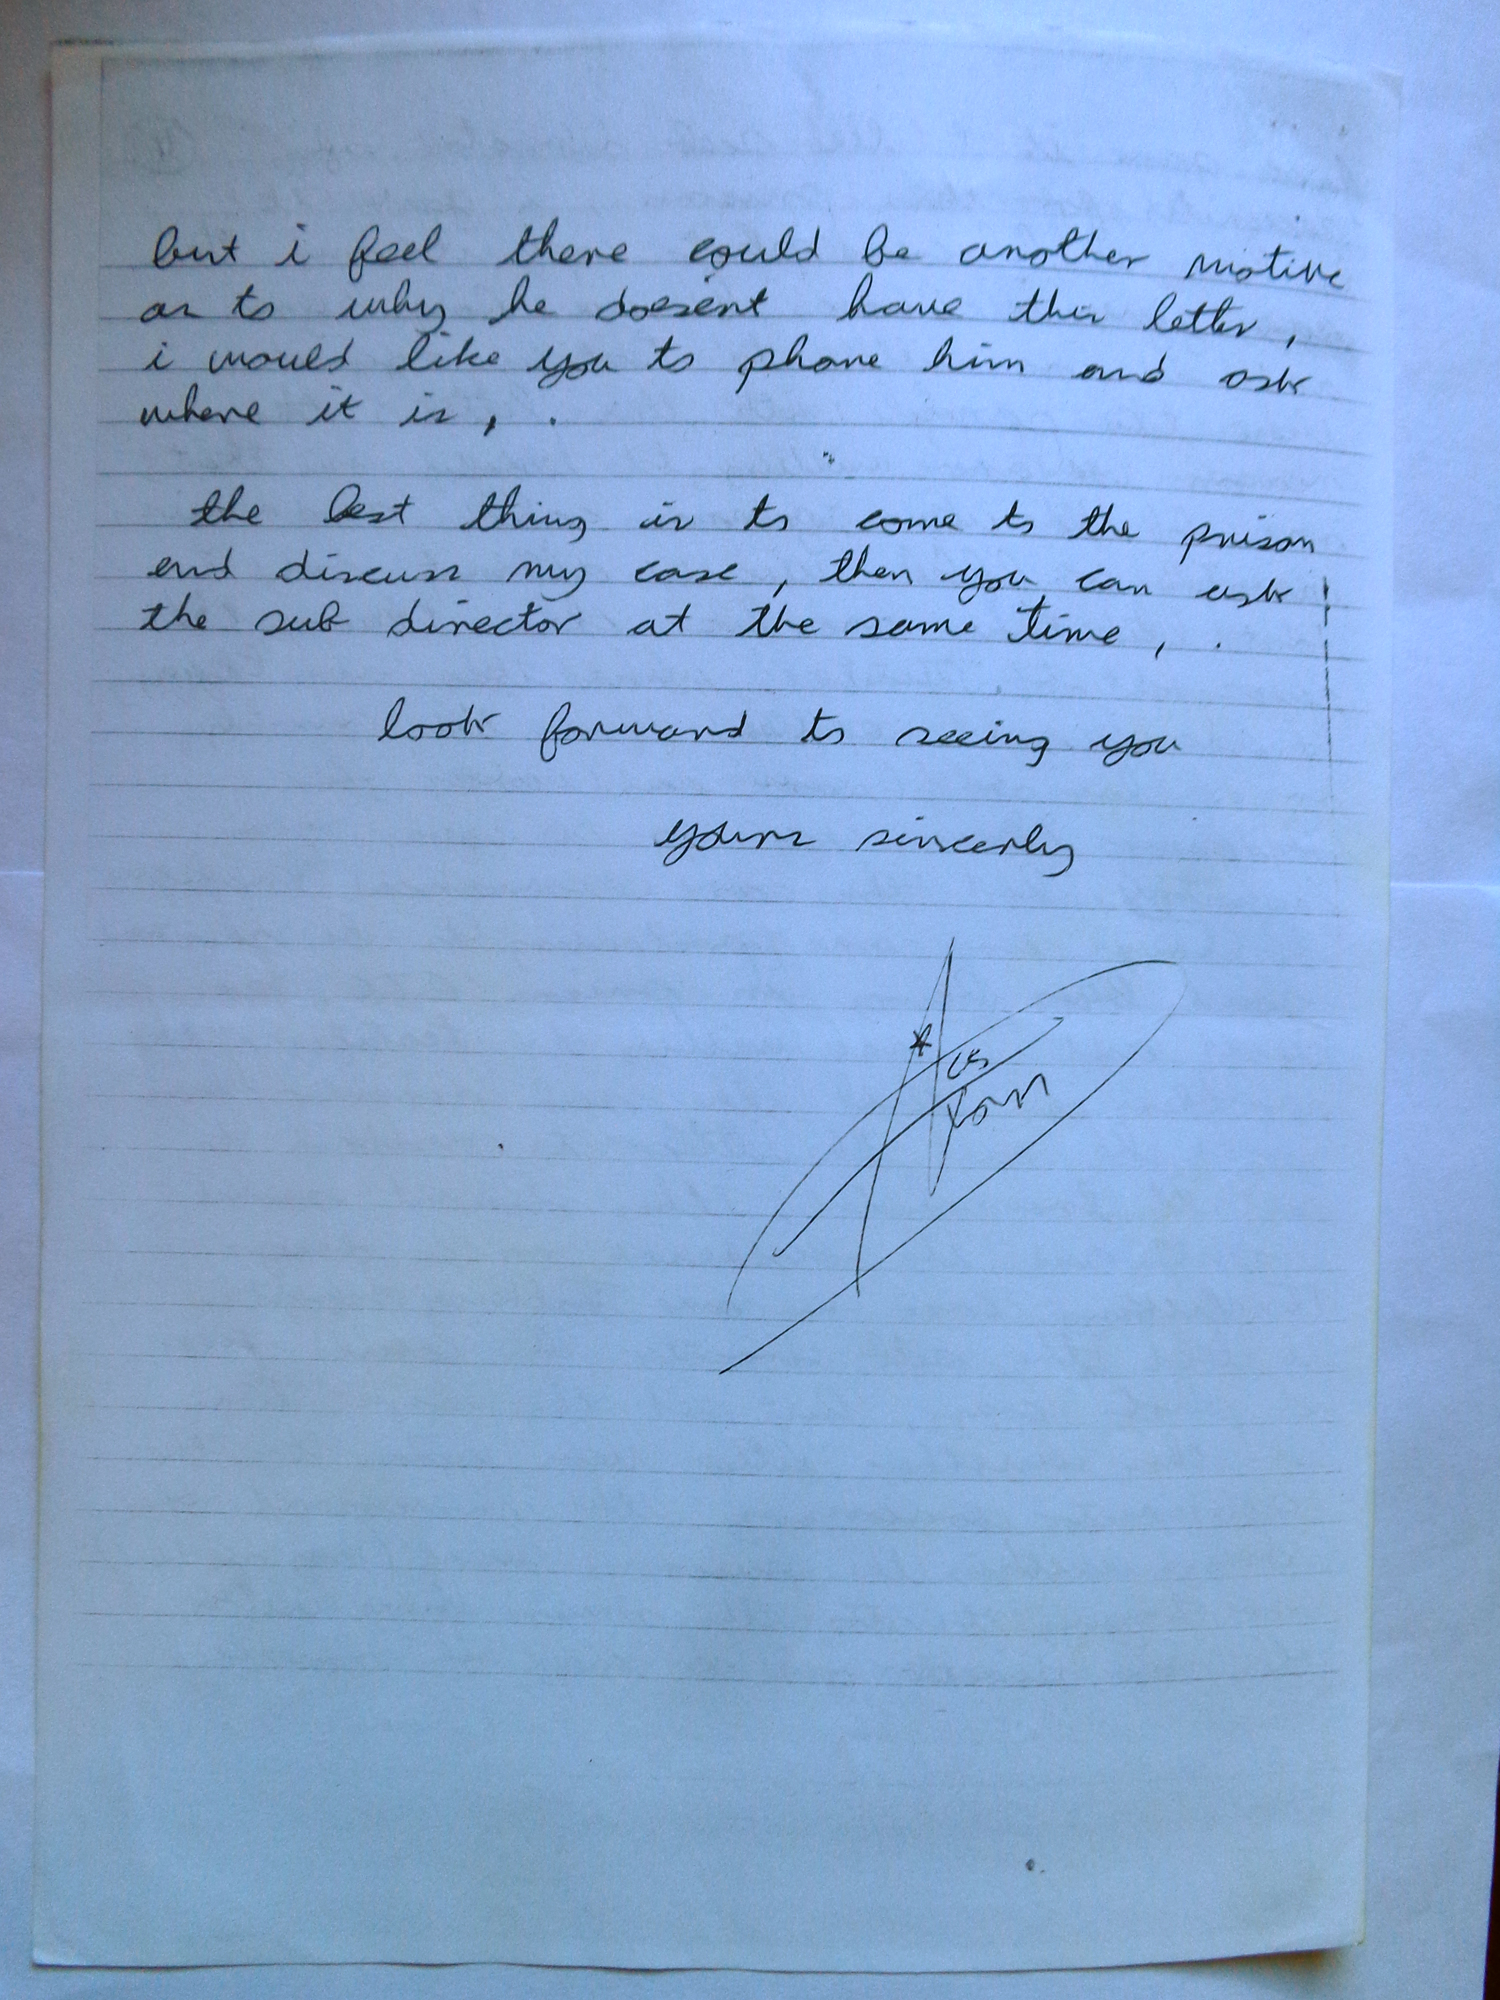 but i feel there could be another motive
as to why he doesent have this letter,
i would like you to phone him and ask
where it is, .
the best thing is to come to the prison
and discuss my case, then you can ask
the sub director at the same time, .
look forward to seeing you
yours sincerly